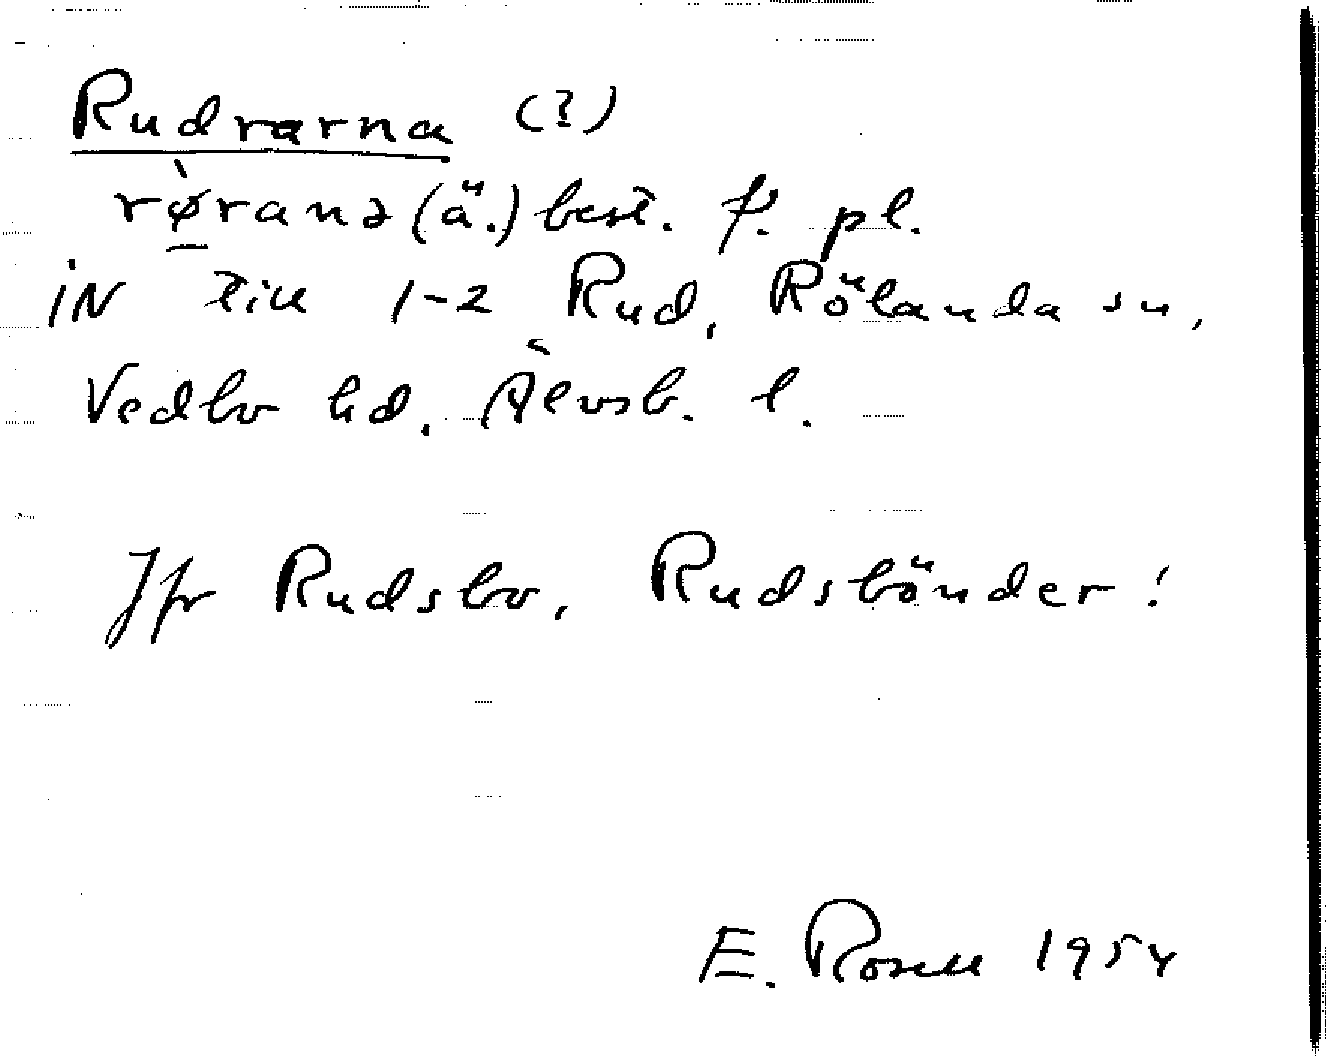 Rudrarna (?)
rø̠̀ranə (ä.) best. f. pl.
iN till 1-2 Rud, Rölanda sn,
Vedbo hd, Älvsb. l.
Jfr Rudsbo, Rudsbönder!
E. Rosell 1954